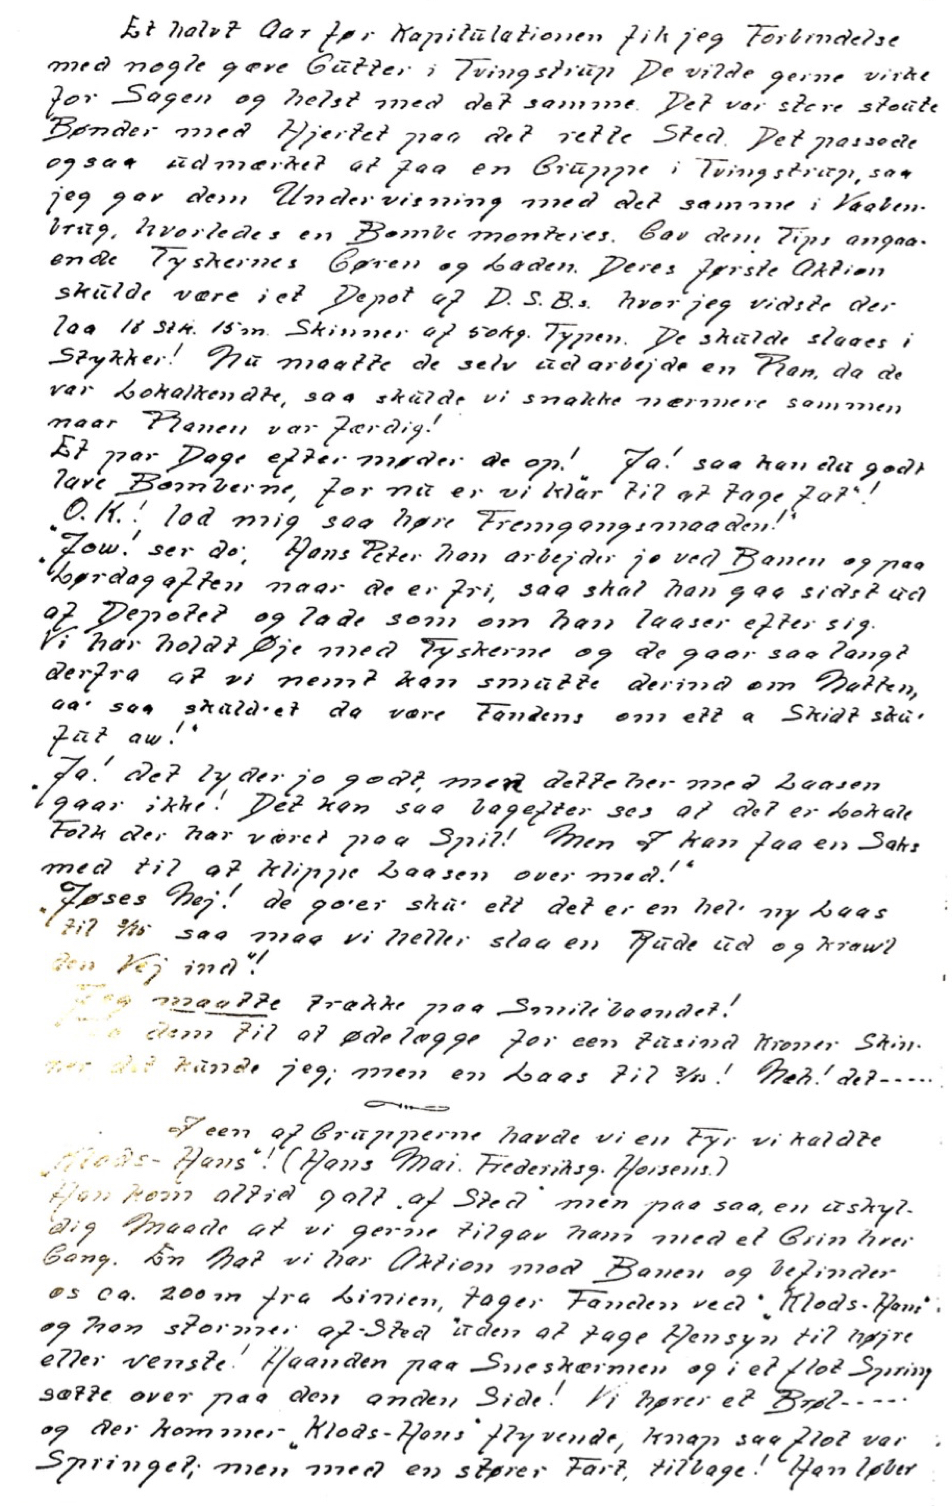 Et halvt Aar før Kapitulationen fik jeg Forbindelse
med nogle gæve Gutter i Tvingstrup De vilde gerne virke
for Sagen og helst med det samme. Det var store stoute
Bønder med Hjertet paa det rette Sted. Det passede
ogsaa udmærket at faa en Gruppe i Tvingstrup, saa
jeg gav dem Undervisning med det samme i Vaaben-
brug, hvorledes en Bombe monteres. Gav dem Tips angaa-
ende Tyskernes Gøren og Laden. Deres første Aktion
skulde være i et Depot af D.S.B.s. hvor jeg vidste der
laa 18 Stk. 15 m. Skinner af 50kg. Typen. De skulde slaaes i
Stykker! Nu maatte de selv udarbejde en Plan, da de
var Lokalkendte, saa skulde vi snakke nærmere sammen
naar Planen var færdig!
Et par Dage efter møder de op! "Ja! saa kan du godt
lave Bomberne, for nu er vi klar til at tage fat"!
"O.K.! lad mig saa høre Fremgangsmaaden!"
"Jow! ser do, Hans Peter han arbejder jo ved Banen og paa
Lørdag aften naar de er fri, saa skal han gaa sidst ud
af Depotet og lade som om han laaser efter sig.
Vi har holdt Øje med Tyskerne og de gaar saa langt
derfra at vi nemt kan smutte derind om Natten,
aa' saa skuld'et da være Fandens om ett a Skidt sku'
fut aw!"
"Ja! det lyder jo godt, men dette her med Laasen
gaar ikke! Det kan saa bagefter ses at det er Lokale
Folk der har været paa Spil! Men I kan faa en Saks
med til at klippe Laasen over med!"
"Jøses Nej! de go'er sku' ett det er en hel' ny Laas
til saa maa vi heller slaa en Rude ud og krawl
den Vej ind"!
Jeg maatte trække paa Smilebaandet!
dem til at ødelægge for een tusind Kroner Skin-
ner det kunde jeg; men en Laas til ! Neh! det-----
I een af Grupperne havde vi en Fyr vi kaldte
"Klods-Hans"! (Hans Mai. Frederiksg. Horsens.)
Han kom altid galt "af Sted" men paa saa, en uskyl-
dig Maade at vi gerne tilgav ham med et Grin hver
Gang. En Nat vi har Aktion mod Banen og befinder
os ca. 200 m fra Linien, tager Fanden ved "Klods-Hans"
og han stormer af-Sted uden at tage Hensyn til højre
eller venste! Haanden paa Sneskærmen og i et flot Spring
sætte over paa den anden Side! Vi hører et Brøl-----
og der kommer "Klods-Hans" flyvende, knap saa flot var
Springet; men med en større Fart, tilbage! Han løber